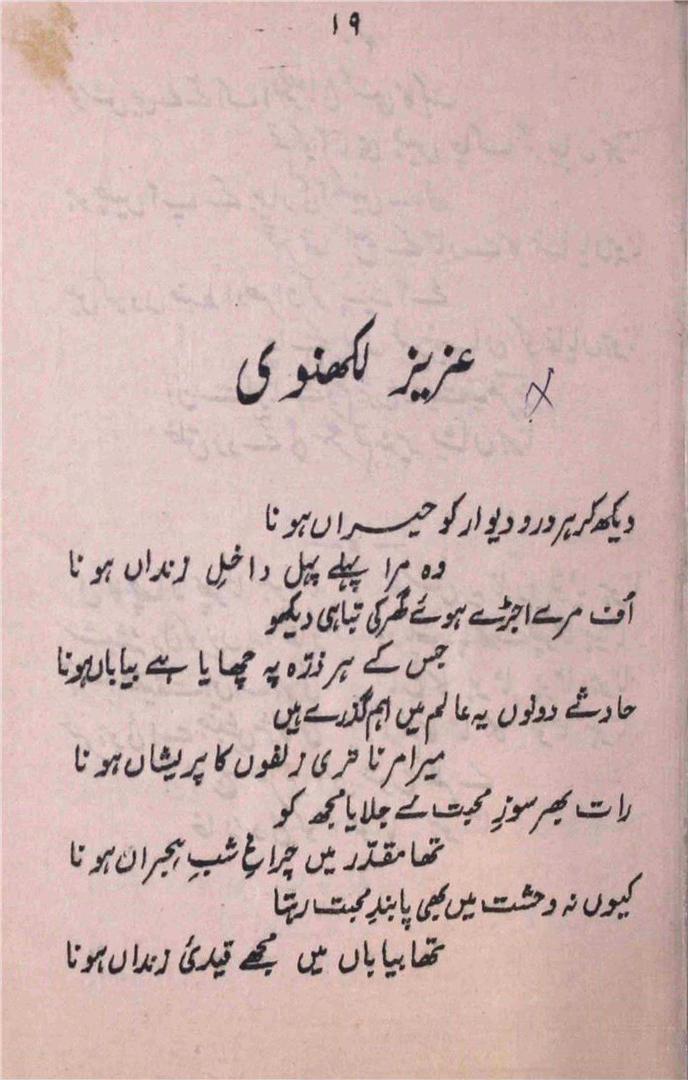 ۱۹
عزیز لکھنوی
دیکھ کر ہر در و دیوار کو حیراں ہونا
وہ مرا پہلے پہل داخلِ زنداں ہونا
اُف مرے اجڑے ہوئے گھر کی تباہی دیکھو
جس کے ہر ذرّہ پہ چھایا ہے بیاباں ہونا
حادثے دونوں یہ عالم میں اہم گذرے ہیں
میرا مرنا تری زلفوں کا پریشاں ہونا
رات بھر سوزِ محبت نے جلایا مجھ کو
تھا مقدّر میں چراغِ شبِ ہجراں ہونا
کیوں نہ وحشت میں بھی پابندِ محبت رہتا
تھا بیاباں میں مجھے قیدیٔ زنداں ہونا